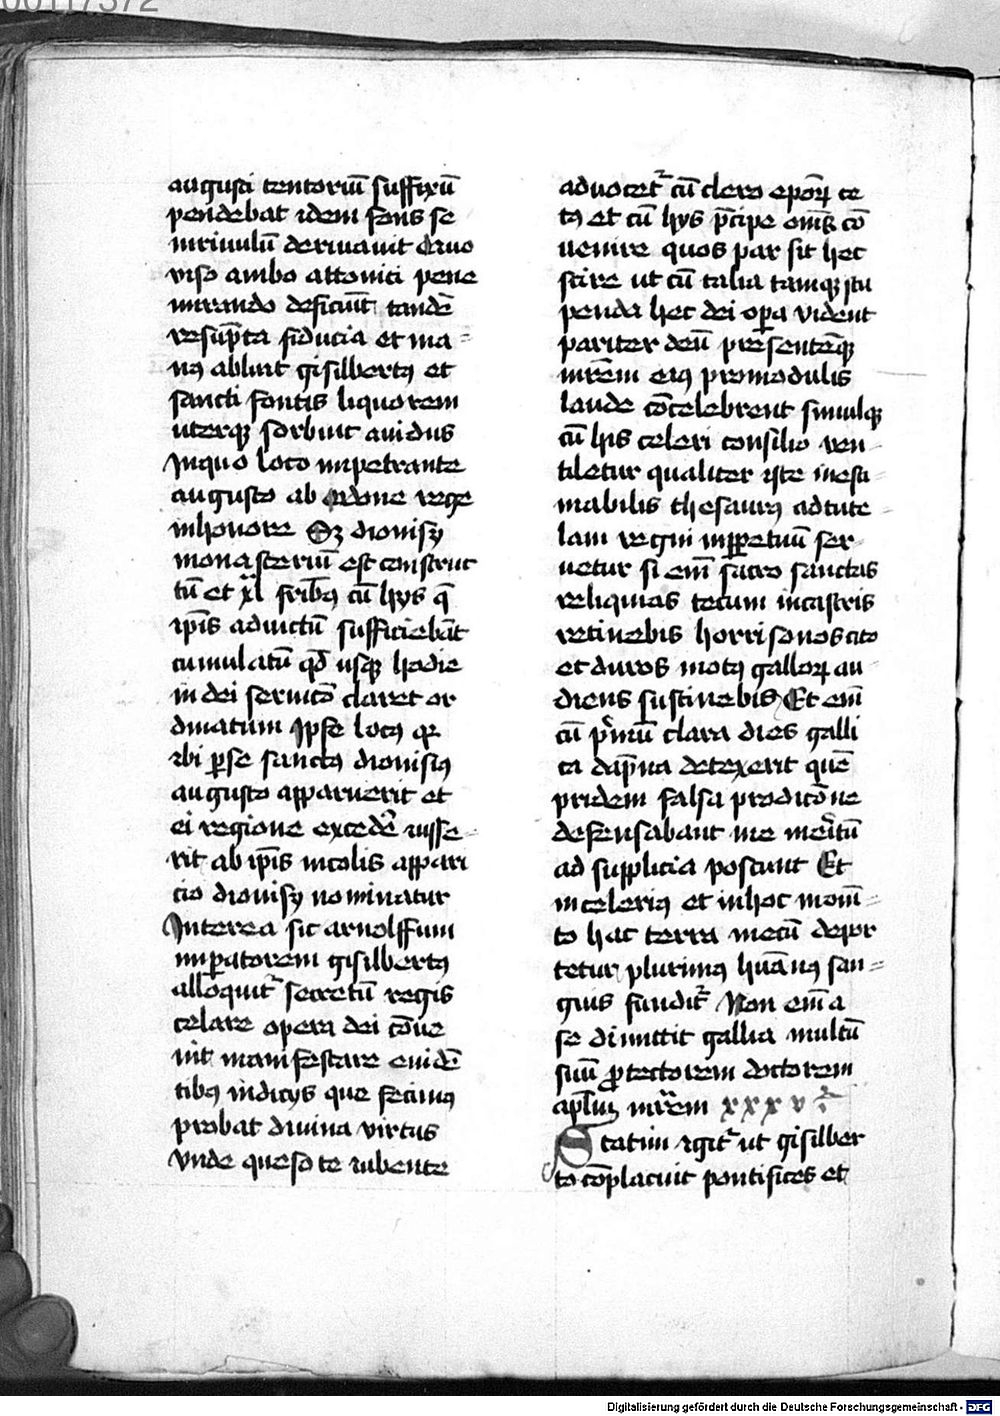 00117372
augusti tentoriū suffixū
pendebat idem fons se
inrivulū derivavit Quo
viso ambo attoniti pene
mirando deficiūt tandē
resūpta fiducia et ma-
nꝯ abluit gisilbertꝯ et
sancti fontis liquorem
uterqꝫ sorbuit avidus
Inquo loco impetrante
augusto ab ordone rege
inhonore Sci dionisy
monasteriū est construc
tū et xl fribꝯ cū hys q̄
ip̄is advictū sufficiebāt
cumulatū qd̄ usqꝫ hodie
in dei servicō claret or
dinatum Ipse locꝯ qꝛ
ibi ꝑse sanctꝯ dionisiꝯ
augusto apparuerit et
ei regione excedē iusse-
rit ab ip̄is incolis appari
cio dionisy nominatur
Interea sic arnolffum
imꝑatorem gisilbertꝯ
alloquit᷑ secretū regis
celare opera dei cōve
nit manifestare evidē
tibꝯ indicys que fecimꝯ
probat divina virtus
Unde queso te iubente
advocet᷑ cū clero epōꝝ ce
tꝯ et cū hys p̄cipe om̄s cō
venire quos par sit hec
scire ut cū talia tamqꝫ stu
penda hec dei oꝑa vident
pariter deū presentēqꝫ
mr̄em eiꝯ promodulis
laude cōcelebrent simulqꝫ
cū his celeri consilio ven-
tiletur qualiter iste inesti-
mabilis thesaurꝯ adtute-
lam regni inꝑpetuū ser-
vetur si em̄ sacro sanctas
reliquias tecum incastris
retinebis horrisonos cito
et duros motꝯ galloꝝ au-
diens sustinebis Et em̄
cū p̄mū clara dies galli
ca dāpna detexerit quē
pridem falsa prodicōne
defensabant me meritū
ad supplicia poscunt Et
inceleriꝯ et inhoc mom̄-
to hac terra mecū depor
tetur plurimꝯ hūanꝯ san-
guis fundit᷑ Non em̄ a
se dimittit gallia multū
suū ꝓtectorem doctorem
apl̄m nr̄em xxxv
Statim igit᷑ ut gisilber
to cōplacuit pontifices et
Digitalisierung gefördert durch die Deutsche Forschungsgemeinschaft - DFG